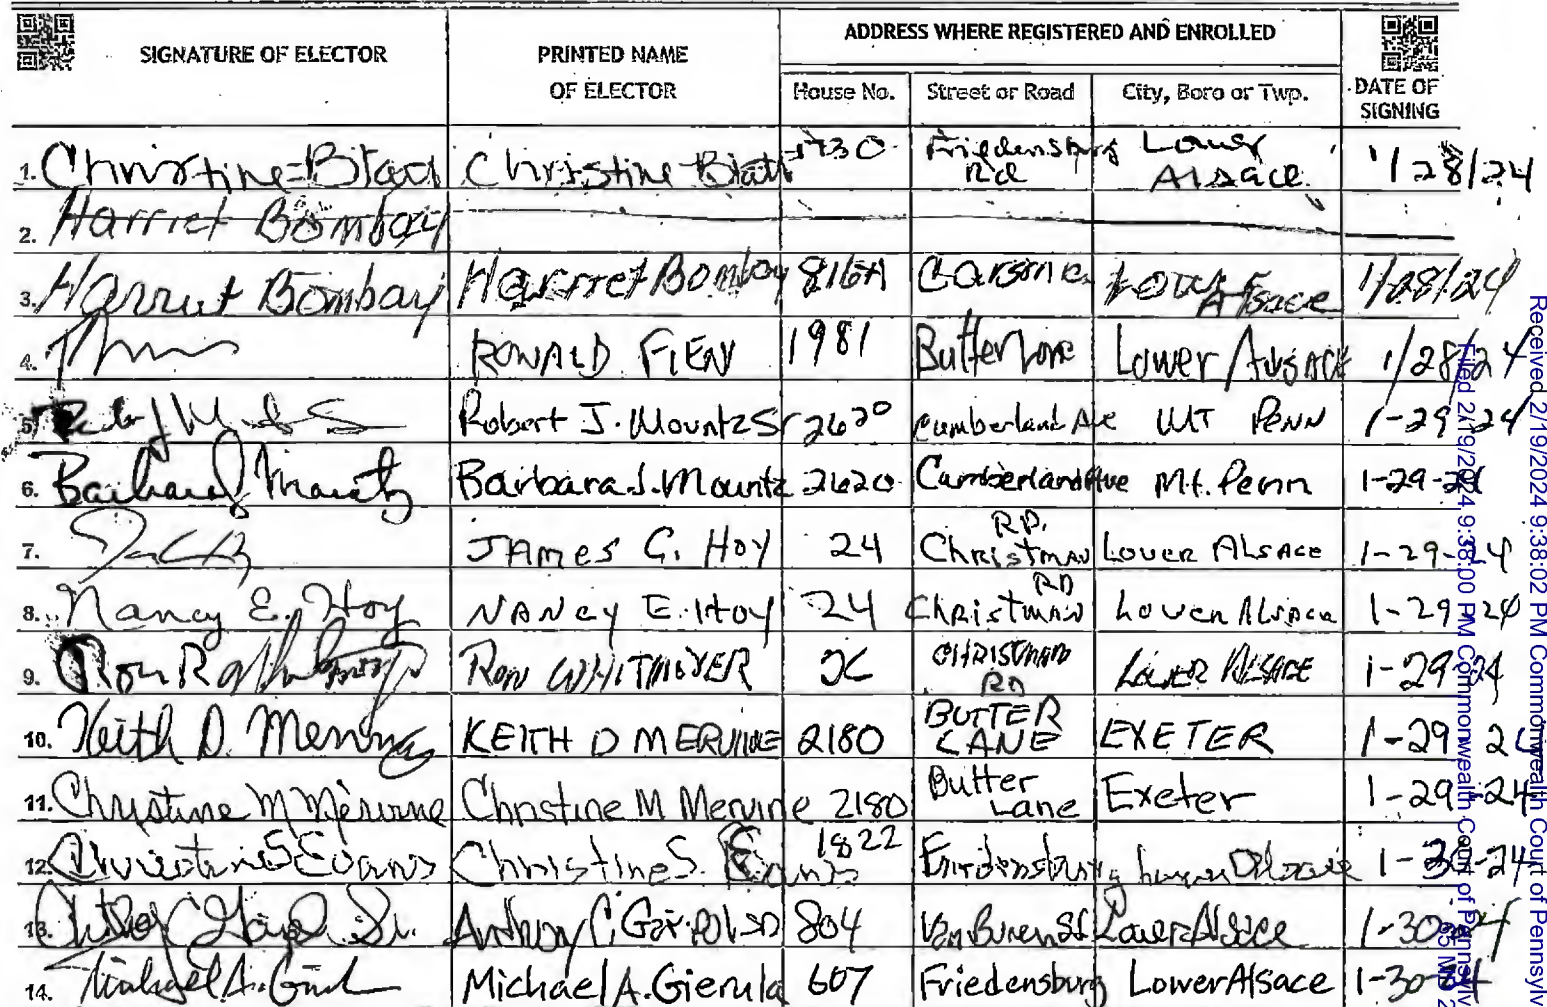 SIGNATURE OF ELECTOR PRINTED NAME OF ELECTOR ADDRESS WHERE REGISTERED AND ENROLLED DATE OF SIGNING
House No. Street or Road City, Boro or Twp.
1. Christine Blatt Christine Blatt 1730 Friedensburg Rd Lower Alsace 1/28/24
2. Harriet Bombay
3. Harriet Bombay Harriet Bombay 816A Lower Alsace 1/28/24
4. RONALD FIEN 1981 Butter Lane Lower 1/28/24
5. Robert J. Mountz Sr 2620 Cumberland Ave MT PENN 1-29-24
6. Barbara J. Mountz Barbara J. Mountz 2620 Cumberland Ave Mt. Penn 1-29-24
7. JAMES G. HOY 24 Christman RD. LOWER ALSACE 1-29-24
8. Nancy E. Hoy NANCY E. HOY 24 Christman RD Lower Alsace 1-29-24
9. RON WHITMOYER CHRISTMAN RD LOWER ALSACE 1-29-24
10. Keith D. Mervine KEITH D MERVINE 2180 BUTTER LANE EXETER 1-29 24
11. Christine M Mervine Christine M Mervine 2180 Butter Lane Exeter 1-29-24
12. Christine S Evans Christine S. Evans 1822 Friedensburg Lower Alsace 1-30-24
13. Anthony C. 804 Van Buren St Lower Alsace 1-30-24
14. Michael A. Gierula Michael A. Gierula 607 Friedensburg Lower Alsace 1-30-24
Received 2/19/2024 9:38:02 PM Commonwealth Court of Pennsylv
Filed 2/19/2024 9:38:00 PM Commonwealth Court of Pennsylv
65 MD 2